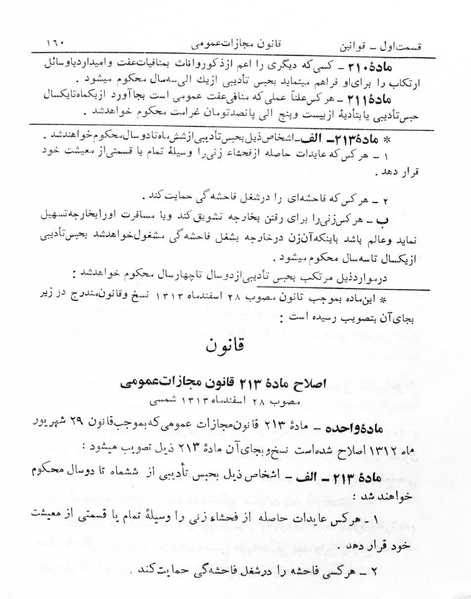 قسمت اول ـ قوانین قانون مجازات عمومی ۱۶۰
مادهٔ ۲۱۰ ـ کسی که دیگری را اعم از ذکور و اناث بمنافیات عفت وامیدارد یا وسائل
ارتکاب را برای او فراهم مینماید بحبس تأدیبی از یک الی سه سال محکوم میشود .
مادهٔ ۲۱۱ ـ هر کس علناً عملی که منافی عفت عمومی است بجا آورد از یکماه تا یکسال
حبس تأدیبی یا بتأدیهٔ از بیست و پنج الی پانصد تومان غرامت محکوم خواهد شد .
* مادهٔ ۲۱۳ ـ الف ـ اشخاص ذیل بحبس تأدیبی از شش ماه تا دو سال محکوم خواهند شد .
۱ ـ هر کس که عایدات حاصله از فحشاء زنی را وسیلهٔ تمام یا قسمتی از معیشت خود
قرار دهد .
۲ ـ هر کس که فاحشه‌ای را در شغل فاحشه‌گی حمایت کند .
ب ـ هر کس زنی را برای رفتن بخارجه تشویق کند و یا مسافرت او را بخارجه تسهیل
نماید و عالم باشد باینکه آن زن در خارجه بشغل فاحشه‌گی مشغول خواهد شد بحبس تأدیبی
از یکسال تا سه سال محکوم میشود .
در موارد ذیل مرتکب بحبس تأدیبی از دو سال تا چهار سال محکوم خواهد شد :
* این ماده بموجب قانون مصوب ۲۸ اسفند ماه ۱۳۱۳ نسخ و قانون مندرج در زیر
بجای آن بتصویب رسیده است :
قانون
اصلاح مادهٔ ۲۱۳ قانون مجازات عمومی
مصوب ۲۸ اسفند ماه ۱۳۱۳ شمسی
مادهٔ واحده ـ مادهٔ ۲۱۳ قانون مجازات عمومی که بموجب قانون ۲۹ شهریور
ماه ۱۳۱۲ اصلاح شده است نسخ و بجای آن مادهٔ ۲۱۳ ذیل تصویب میشود :
مادهٔ ۲۱۳ ـ الف ـ اشخاص ذیل بحبس تأدیبی از ششماه تا دو سال محکوم
خواهند شد :
۱ ـ هر کس عایدات حاصله از فحشاء زنی را وسیلهٔ تمام یا قسمتی از معیشت
خود قرار دهد .
۲ ـ هر کسی فاحشه را در شغل فاحشه‌گی حمایت کند .